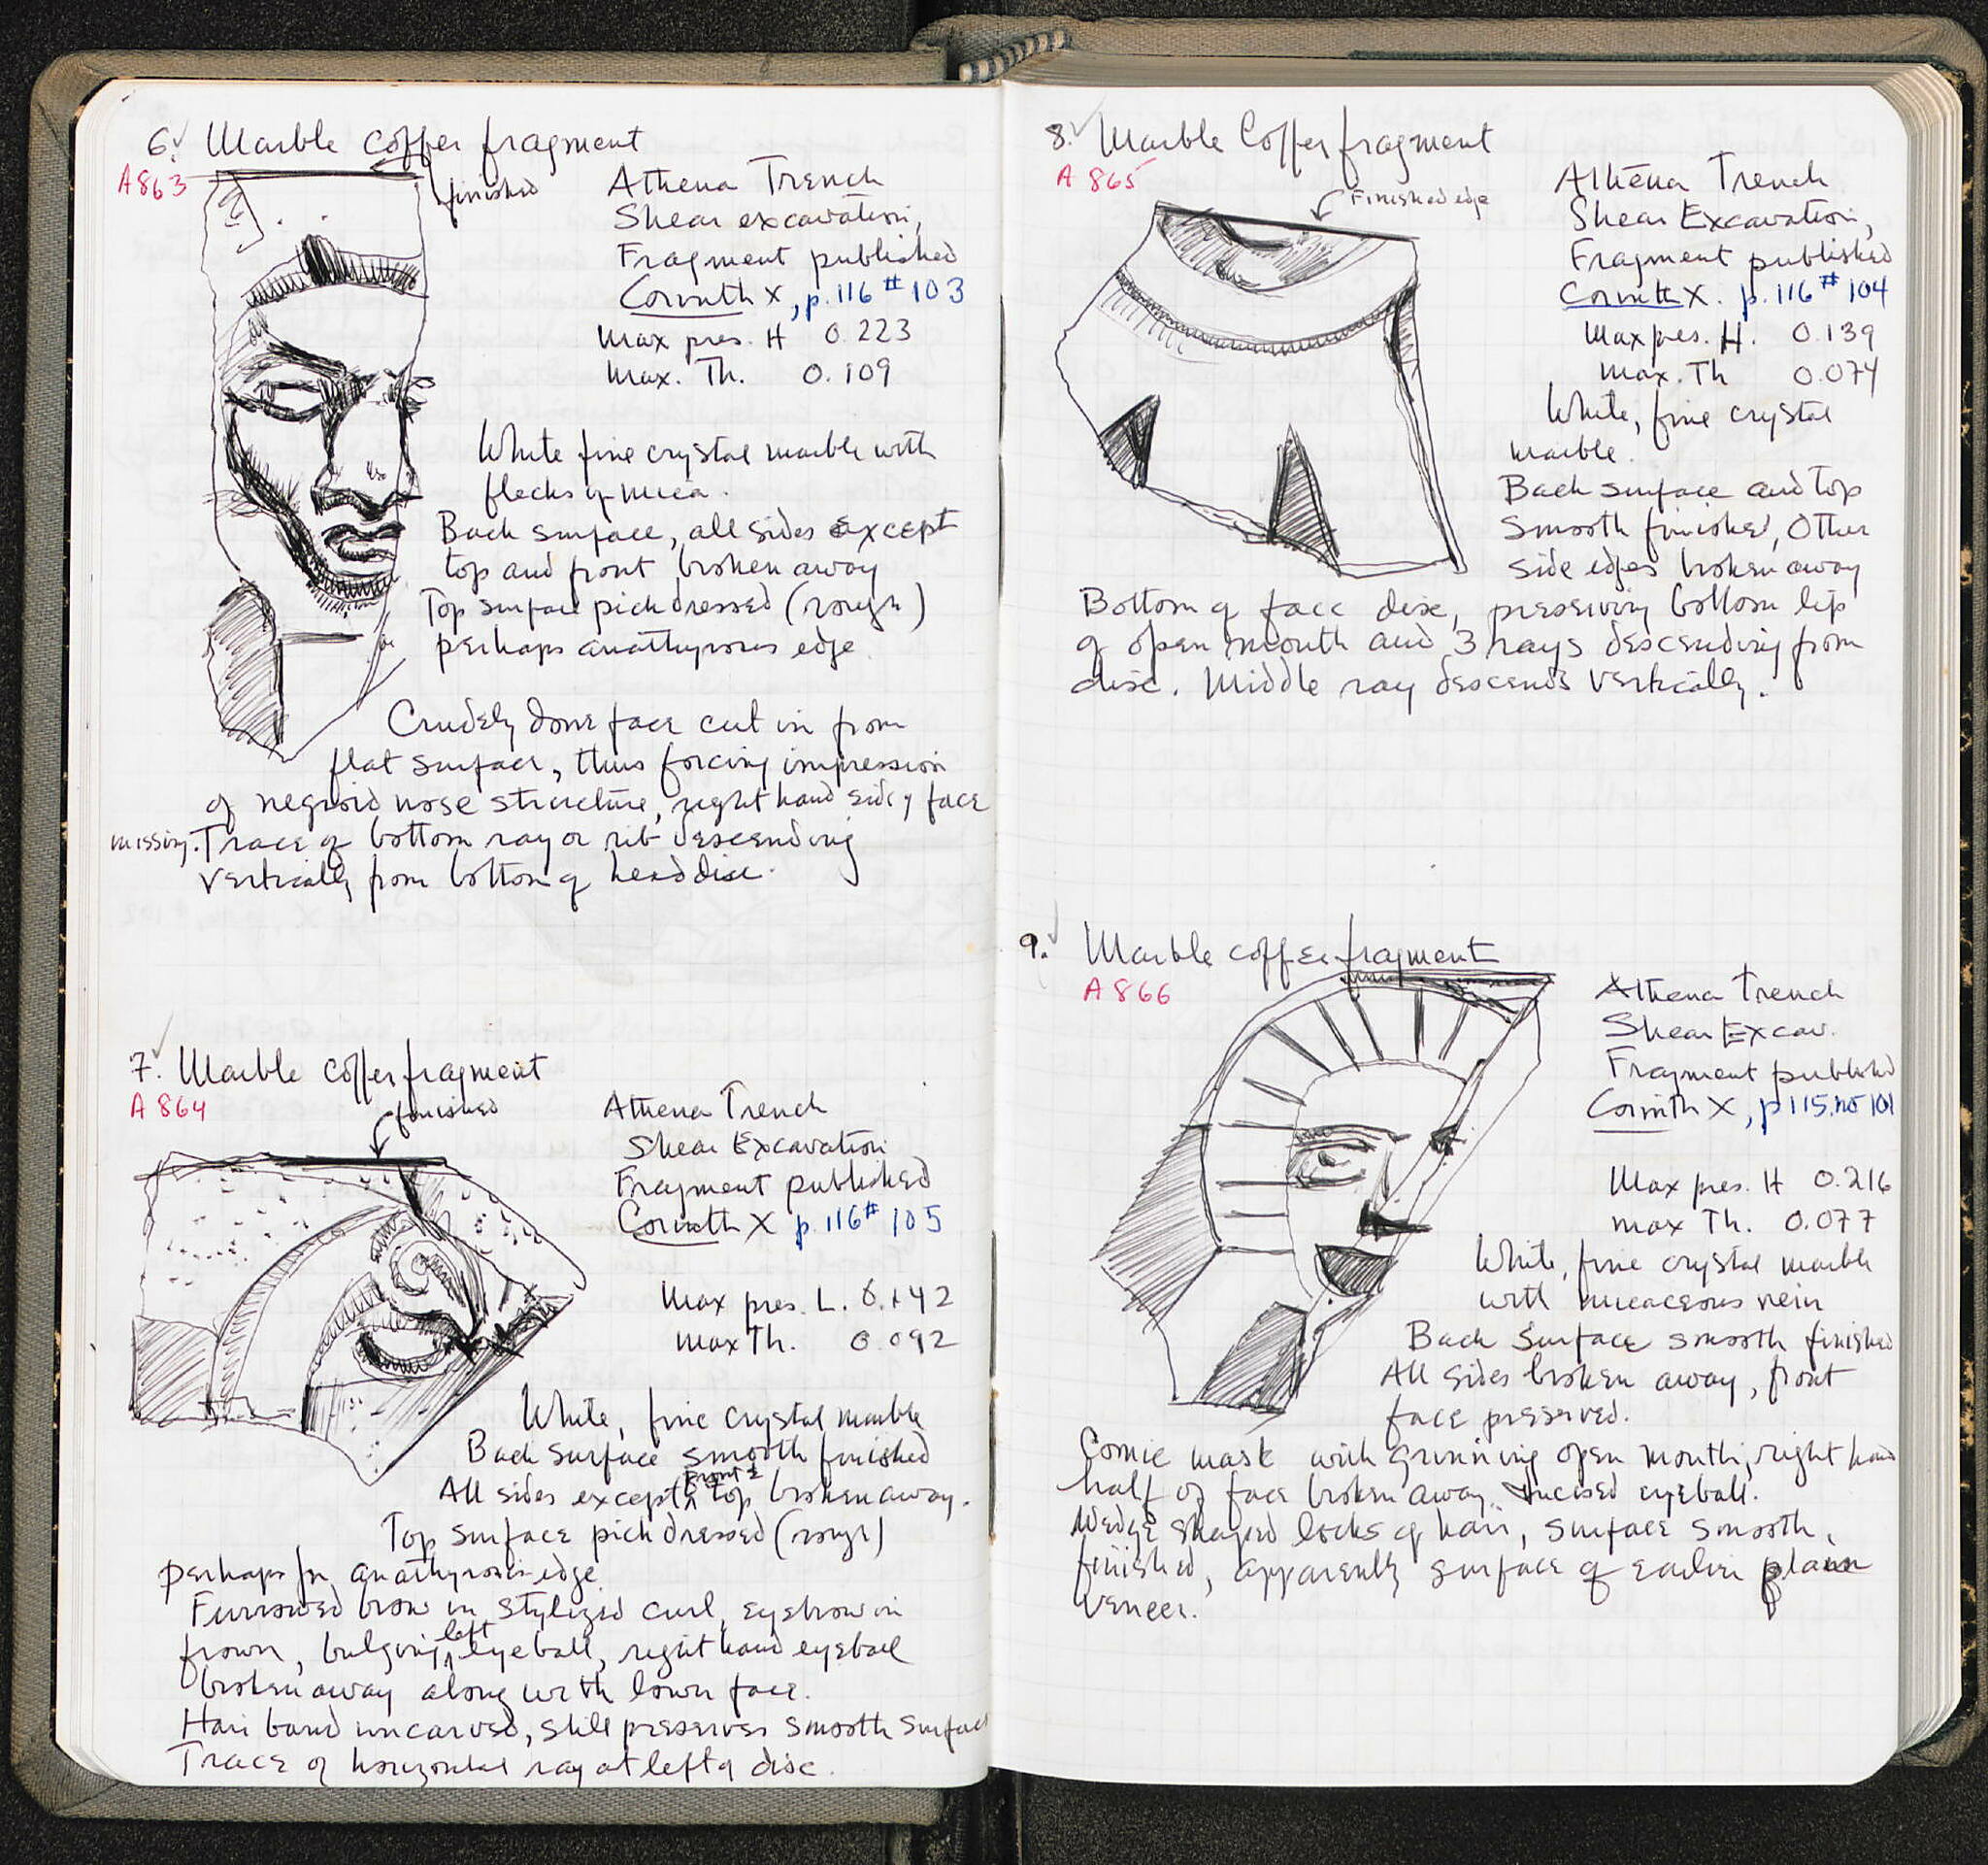 6. Marble coffer fragment
A863
finished
Athena Trench
Shear excavation,
Fragment published
Corinth X, p. 116 # 103
Max pres. H 0.223
Max. Th. 0.109
White fine crystal marble with
flecks of mica.
Back surface, all sides except
top and front broken away
Top surface pick dressed (rough)
perhaps anathyrosis edge
Crudely done face cut in from
flat surface, thus forcing impression
of negroid nose structure, right hand side of face
missing. Trace of bottom ray or rib descending
vertically from bottom of head disc.
7. Marble coffer fragment
A 864
finished
Athena Trench
Shear Excavation
Fragment published
Corinth X p. 116 # 105
Max pres. L. 0.142
Max Th. 0.092
White, fine crystal marble
Back surface smooth finished
All sides except front & top broken away.
Top surface pick dressed (rough)
perhaps for anathyrosis edge
Furrowed brow in stylized curl, eyebrow in
frown, bulging left eyeball, right hand eyeball
broken away along with lower face.
Hair band uncarved, still preserves smooth surface
Trace of horizontal ray at left of disc.
8. Marble Coffer fragment
A 865
Finished edge
Athena Trench
Shear Excavation,
Fragment published
Corinth X. p. 116 # 104
Max pres. H. 0.139
Max. Th 0.074
White, fine crystal
marble.
Back surface and top
smooth finished, other
side edges broken away
Bottom of face disc, preserving bottom lip
of open mouth and 3 rays descending from
disc. Middle ray descends vertically.
9. Marble coffer fragment
A 866
Athena Trench
Shear Excav.
Fragment published
Corinth X, p 115. no 101
Max pres. H 0.216
max Th. 0.077
White, fine crystal marble
with micaceous vein
Back surface smooth finished
All sides broken away, front
face preserved.
Comic mask with grinning open mouth, right hand
half of face broken away. Incised eyeball.
Wedge shaped locks of hair, surface smooth,
finished, apparently surface of earlier plain
veneer.